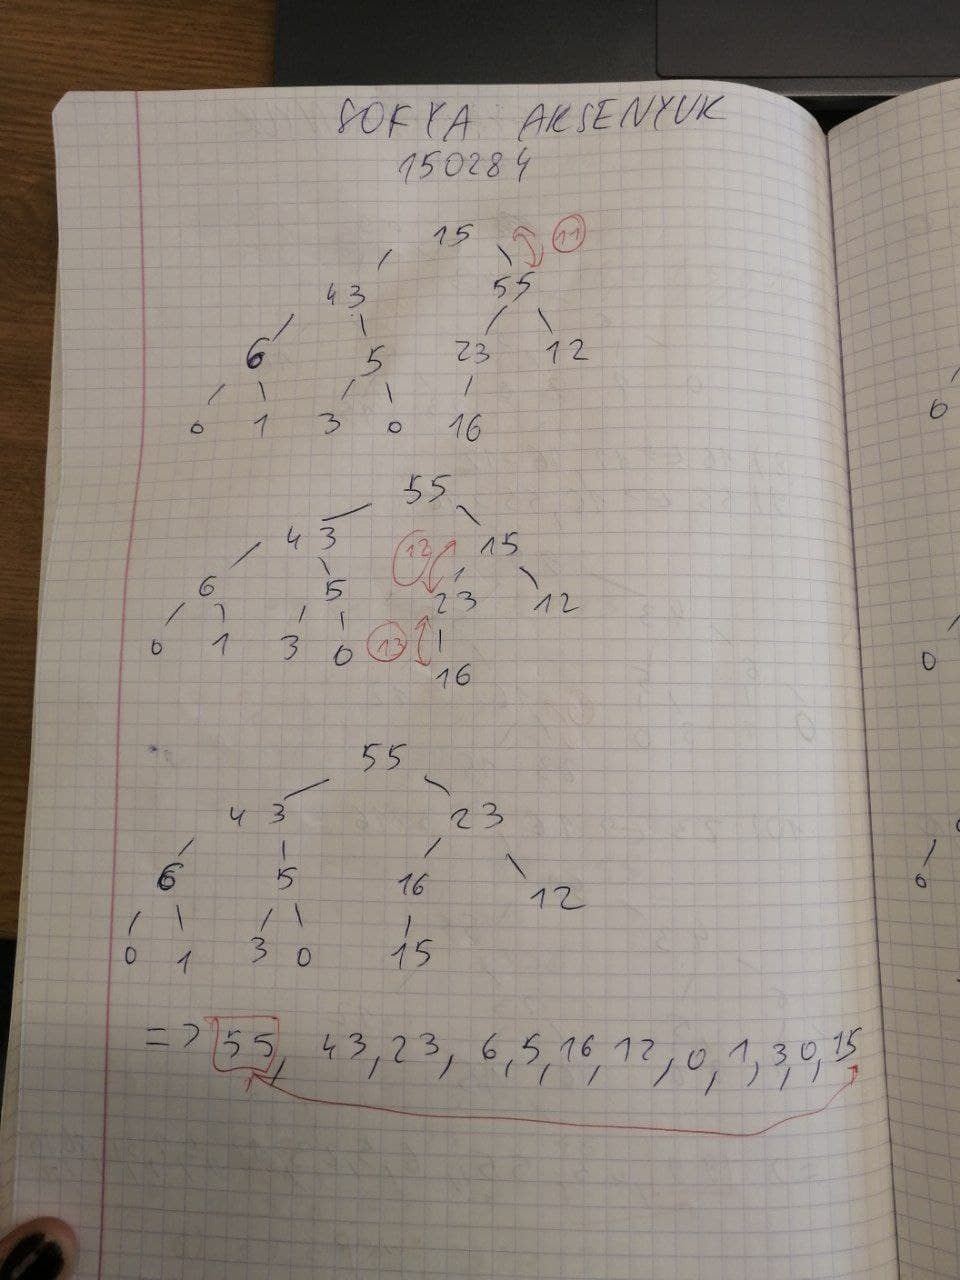 SOFYA ARSENYUK
150284
15 11
43 55
6 5 23 12
0 1 3 0 16
55
43 12 15
6 5 23 12
0 1 3 0 13
16
55
43 23
6 5 16 12
0 1 3 0 15
=> 55, 43, 23, 6, 5, 16, 12, 0, 1, 3, 0, 15
0
0
6